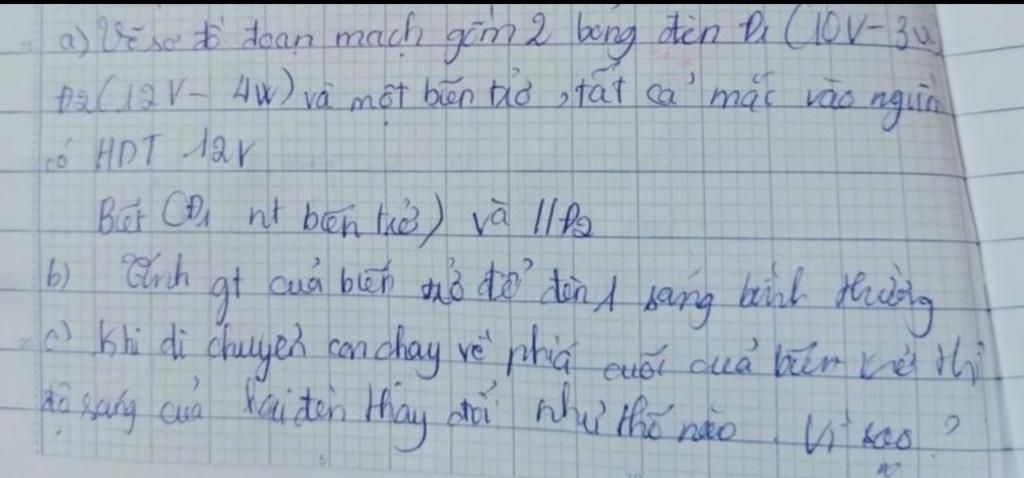 a) Vẽ sơ đồ đoạn mạch gồm 2 bóng đèn Đ1 (10V - 3W
Đ2 (12V - 4W) và một biến trở, tất cả mắc vào nguồn
có HĐT 12V
Biết (Đ1 nt biến trở) và // Đ2
b) Tính gt của biến trở để đèn 1 sáng bình thường
c) Khi di chuyển con chạy về phía cuối của biến trở thì
độ sáng của hai đèn thay đổi như thế nào. Vì sao?